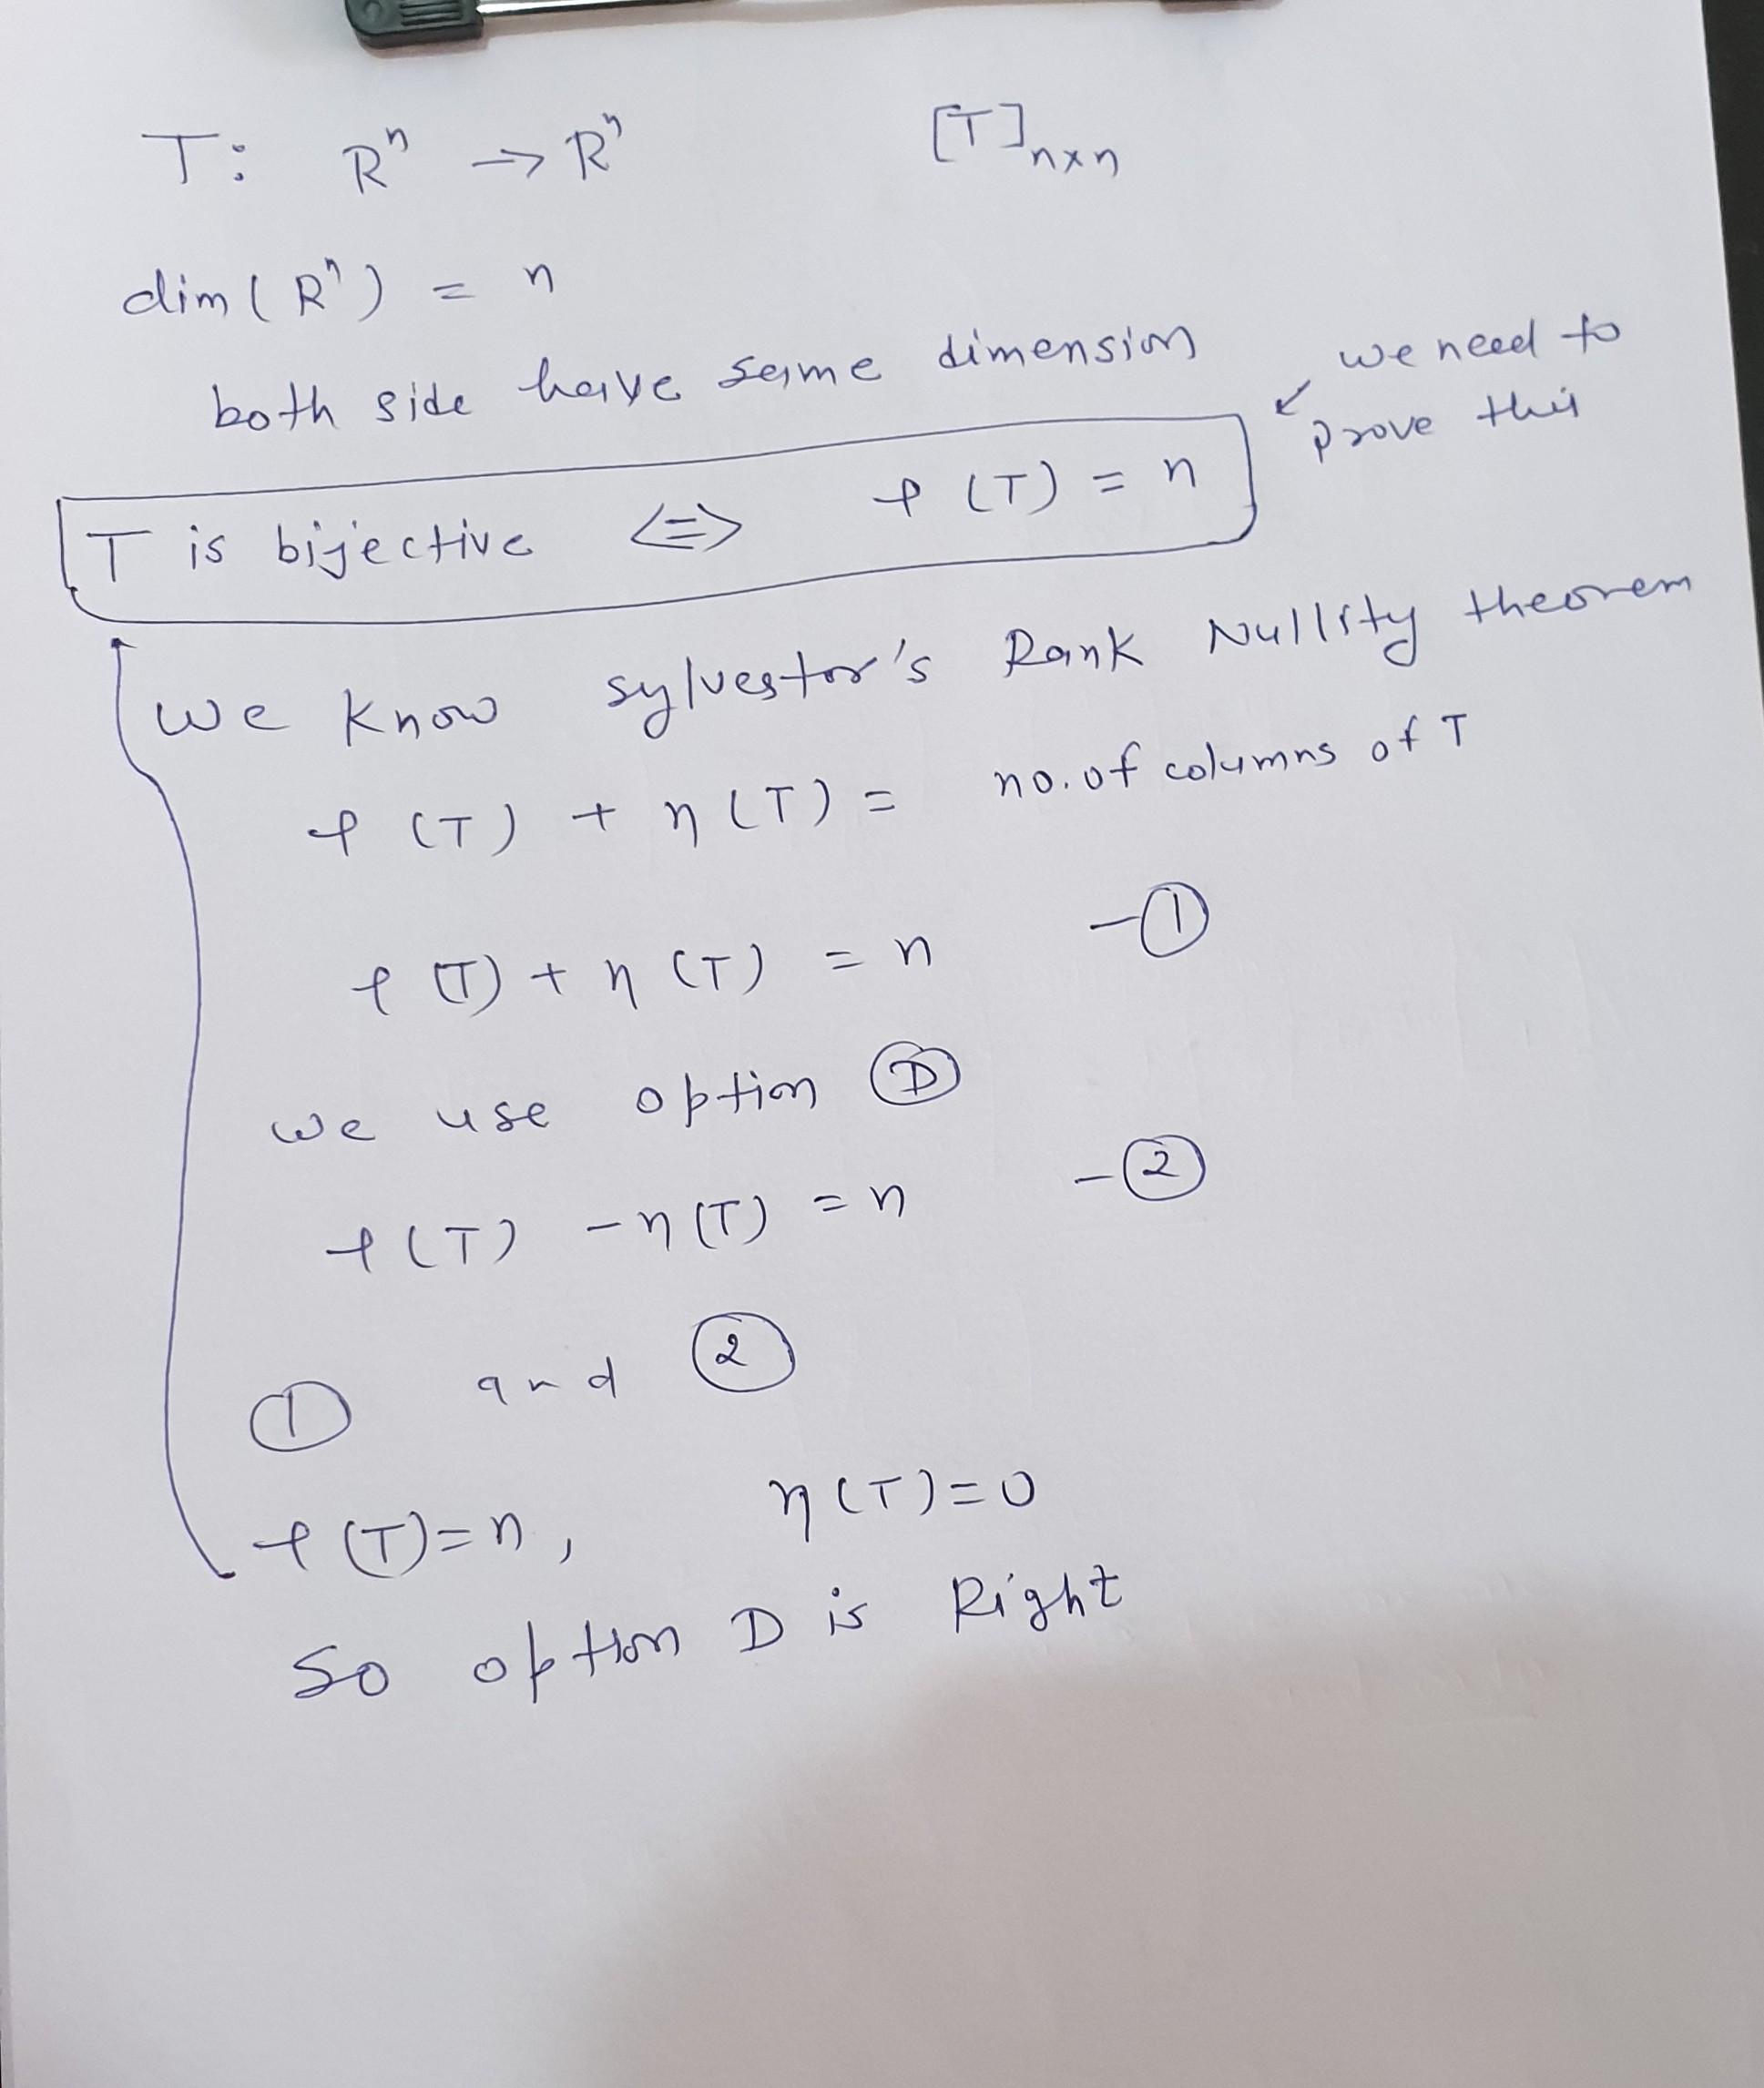 T: Rⁿ → Rⁿ [T]ₙₓₙ
dim(Rⁿ) = n
both side have same dimension
we need to
prove this
T is bijective <=> ρ(T) = n
we know sylvestor's Rank Nullity theorem
ρ(T) + η(T) = no. of columns of T
ρ(T) + η(T) = n -①
we use option Ⓓ
ρ(T) - η(T) = n -②
① and ②
ρ(T)=n, η(T)=0
So option D is Right